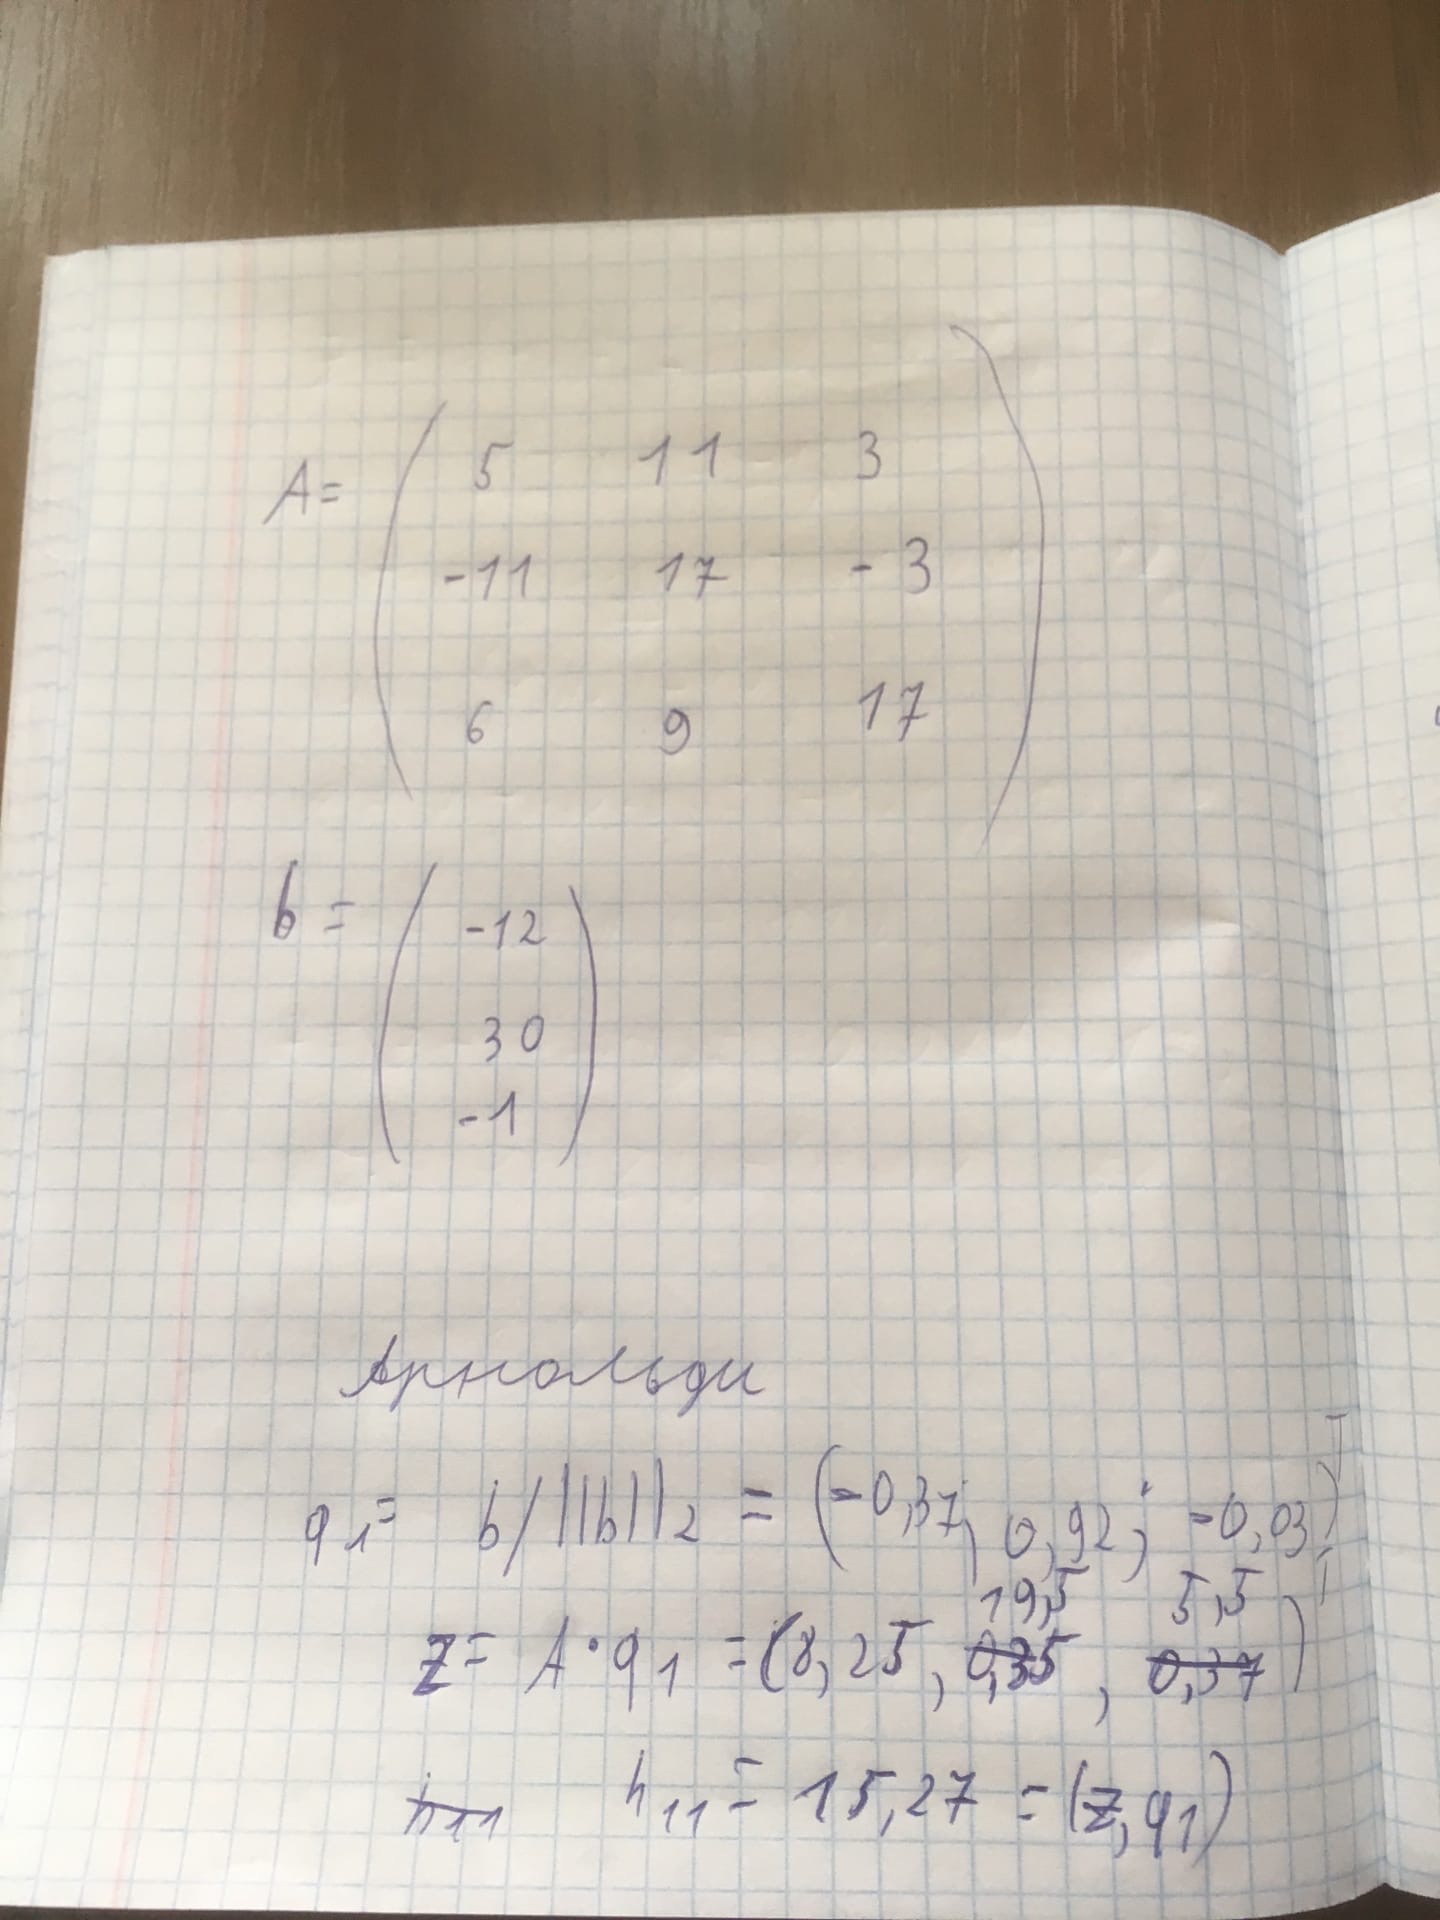 A= ( 5 11 3
-11 17 -3
6 9 17 )
b = ( -12
30
-1 )
Арнольди
q₁= b/||b||₂ = (-0,37; 0,92; -0,03)ᵀ
19,5 5,5
z= A·q₁ =(8,25, 0,35, 0,37)ᵀ
h₁₁ h₁₁= 15,27 = (z, q₁)